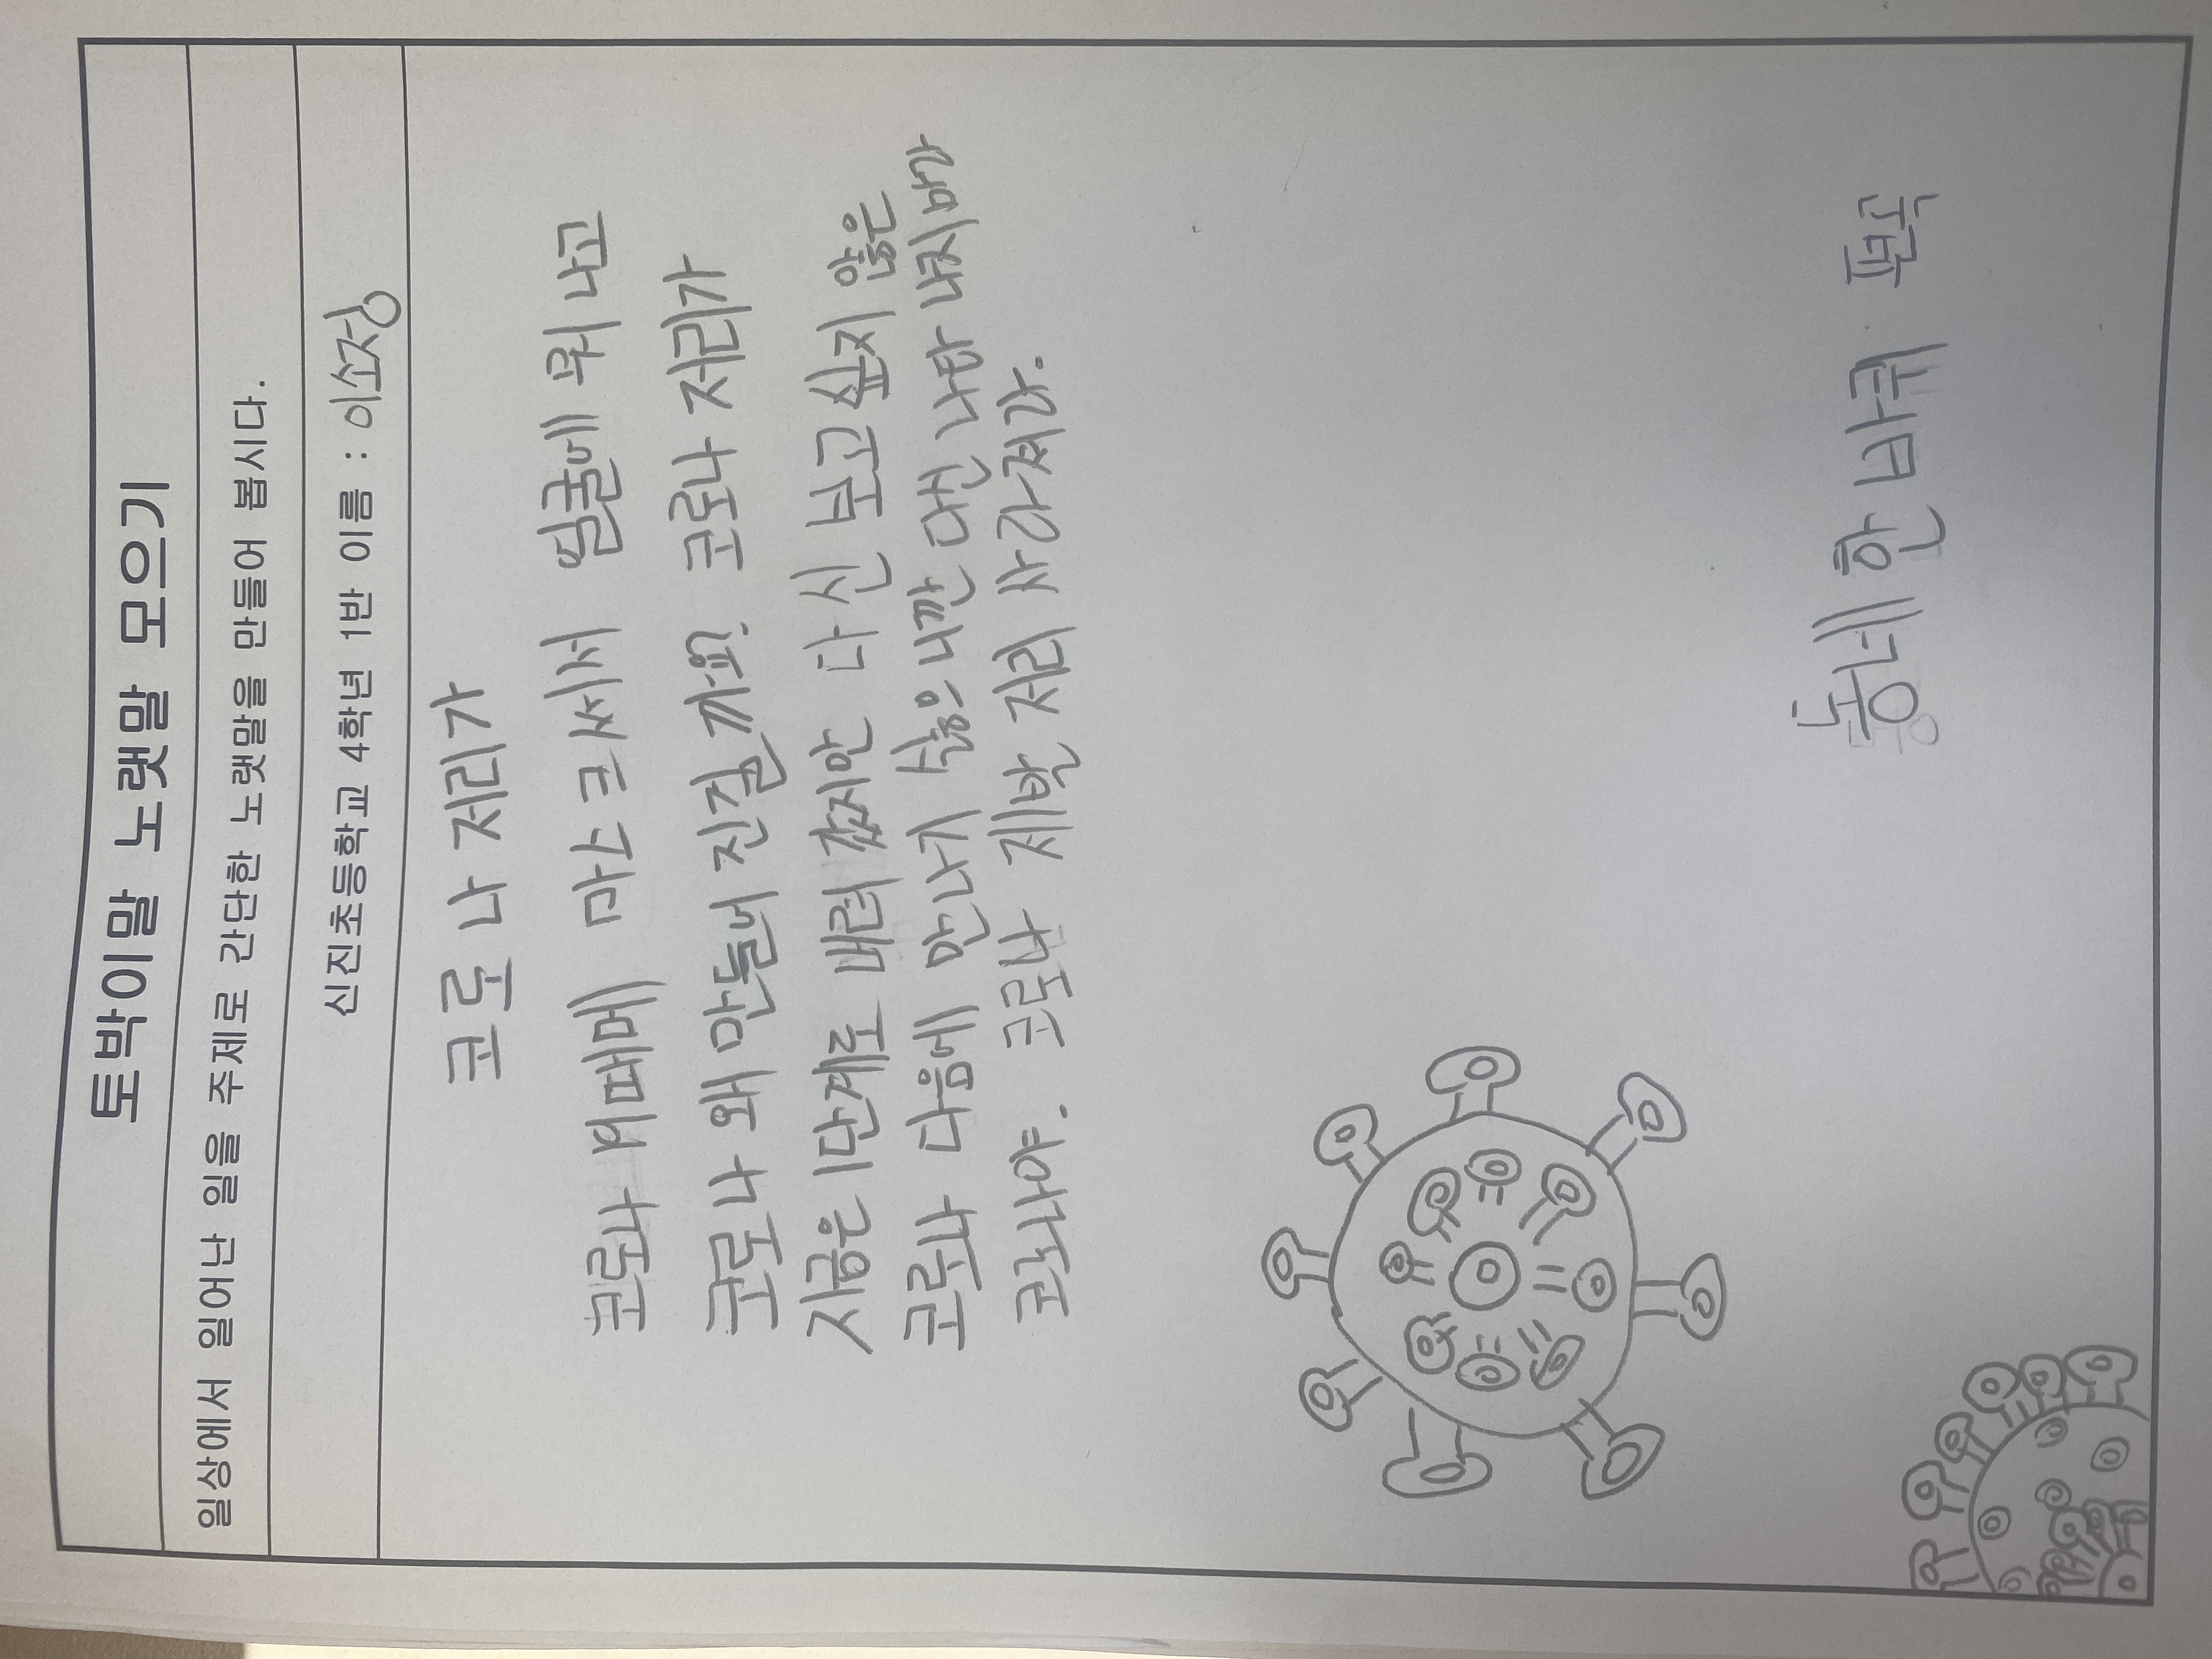 토박이말 노랫말 모으기
일상에서 일어난 일을 주제로 간단한 노랫말을 만들어 봅시다.
신진초등학교 4학년 1반 이름 : 이소정
코로나 저리가
코로나 때메 마스크써서 얼굴에 뭐 나고
코로나 왜 만들어 진걸까요? 코로나 저리가
지금은 1단계로 내려 갔지만 다신 보고싶지 않은
코로나 다음에 만나기 싫으니깐 다신 나타나지마라
코로나야. 코로나 제발 저리 사라져라.
동네 한 바퀴